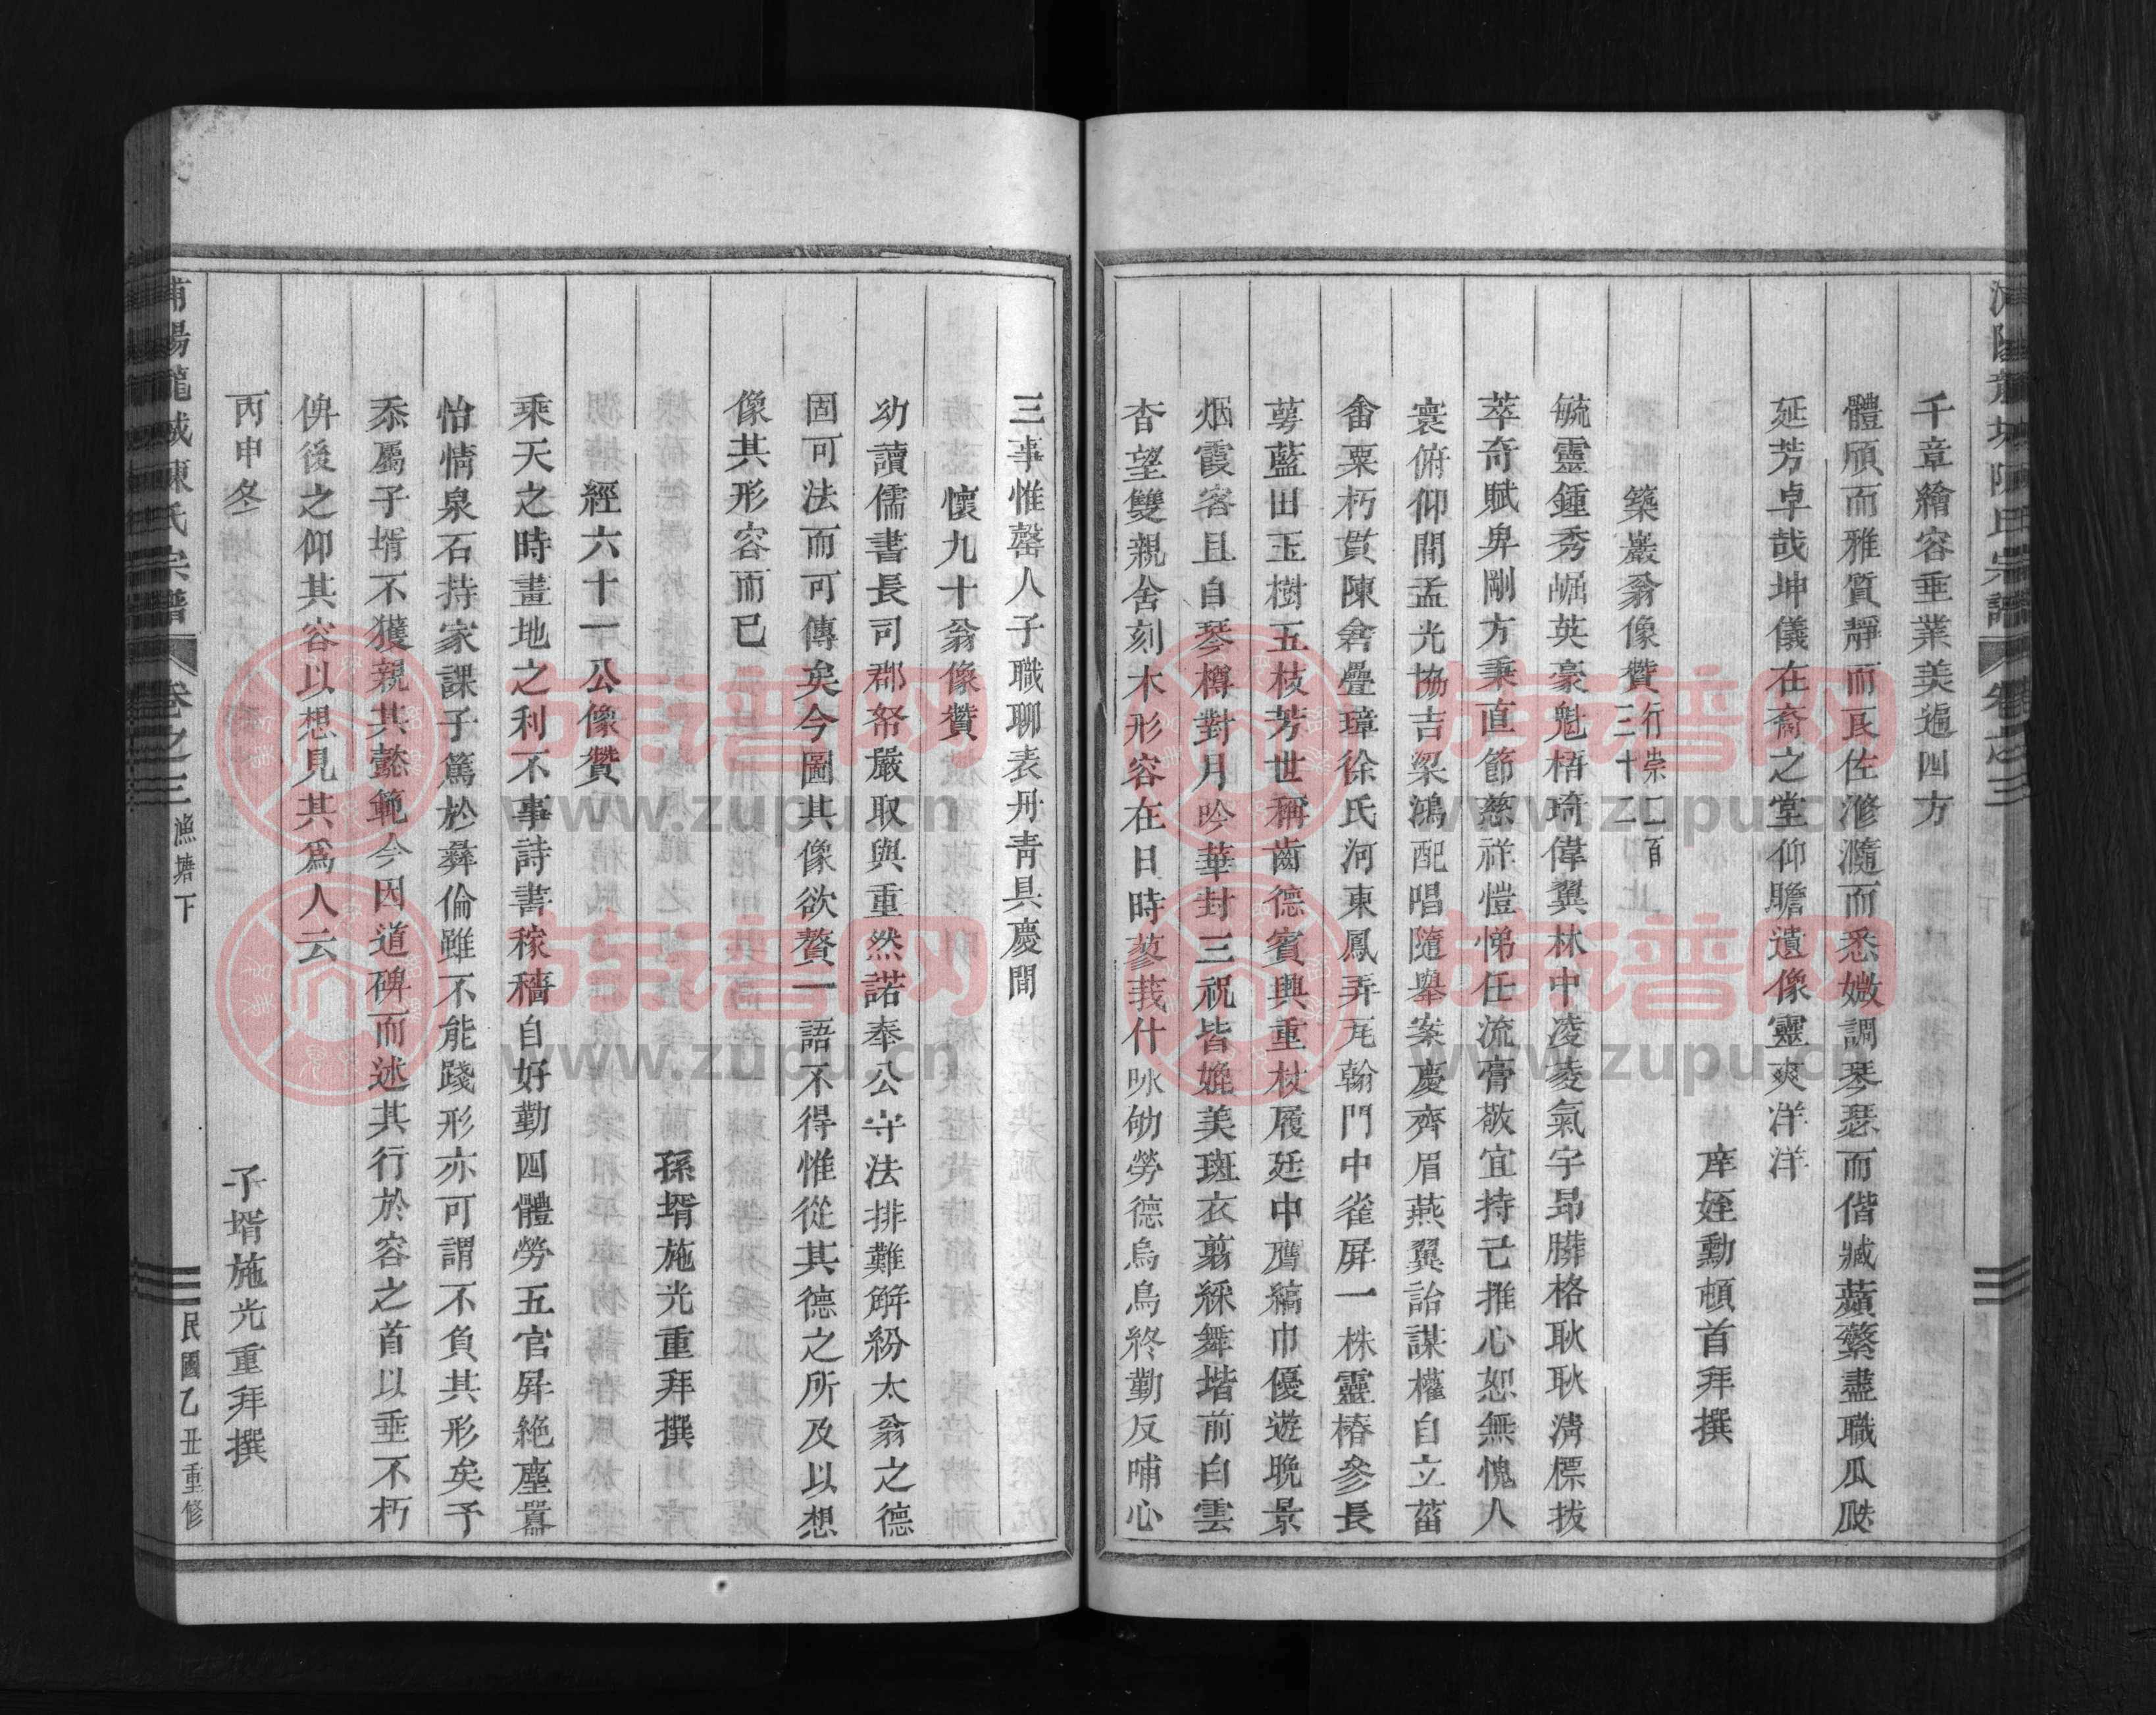 千章繪容垂業美遍四方
體頎而雅質靜而良佐滫瀡而悉媺調琴瑟而偕臧蘋蘩盡職瓜瓞
延芳卓哉坤儀在裔之堂仰瞻遺像靈爽洋洋
庠姪勳頓首拜撰
築巖翁像贊行崇二百三十二
毓靈鍾秀崛英豪魁梧琦偉翼林中凌凌氣宇昂臍格耿耿清標拔
萃奇賦畀剛方秉直節慈祥愷悌任流膏敬宜持己推心恕無愧人
寰俯仰間孟光協吉梁鴻配唱隨舉案慶齊眉燕翼詒謀權自立菑
畬粟朽貫陳倉疊璋徐氏河東鳳弄瓦翰門中雀屏一株靈椿參長
萼藍田玉樹五枝芳世稱齒德賓興重杖履廷中鷹縞巾優遊晚景
烟霞客且自琴樽對月吟華封三祝皆媲美斑衣翦綵舞堦前白雲
杳望雙親舍刻木形容在日時蓼莪什咏劬勞德烏鳥終勤反哺心
三事惟罄人子職聊表丹青具慶間
懷九十翁像贊
幼讀儒書長司郡帑嚴取與重然諾奉公守法排難解紛太翁之德
固可法而可傳矣今圖其像欲贅一語不得惟從其德之所及以想
像其形容而已
孫壻施光重拜撰
經六十一公像贊
乘天之時畫地之利不事詩書稼穡自好勤四體勞五官屏絶塵囂
怡情泉石持家課子篤於彝倫雖不能踐形亦可謂不負其形矣予
忝屬子壻不獲親其懿範今因道碑而述其行於容之首以垂不朽
俾後之仰其容以想見其爲人云
丙申冬
子壻施光重拜撰
浦陽龍城陳氏宗譜
卷之三
漁塘下
民國乙丑重修
族谱网
www.zupu.cn
族谱网
www.zupu.cn
族谱网
www.zupu.cn
族谱网
www.zupu.cn